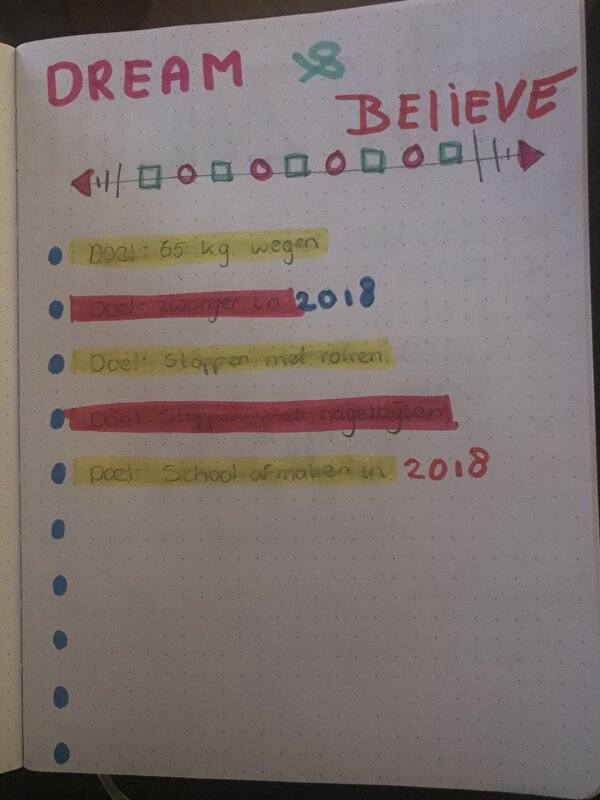 DREAM &
BELiEVE
Doel: 65 kg wegen
Doel: zwanger in 2018
Doel: Stoppen met roken.
Doel: Stoppen met nagelbijten
Doel: School afmaken in 2018